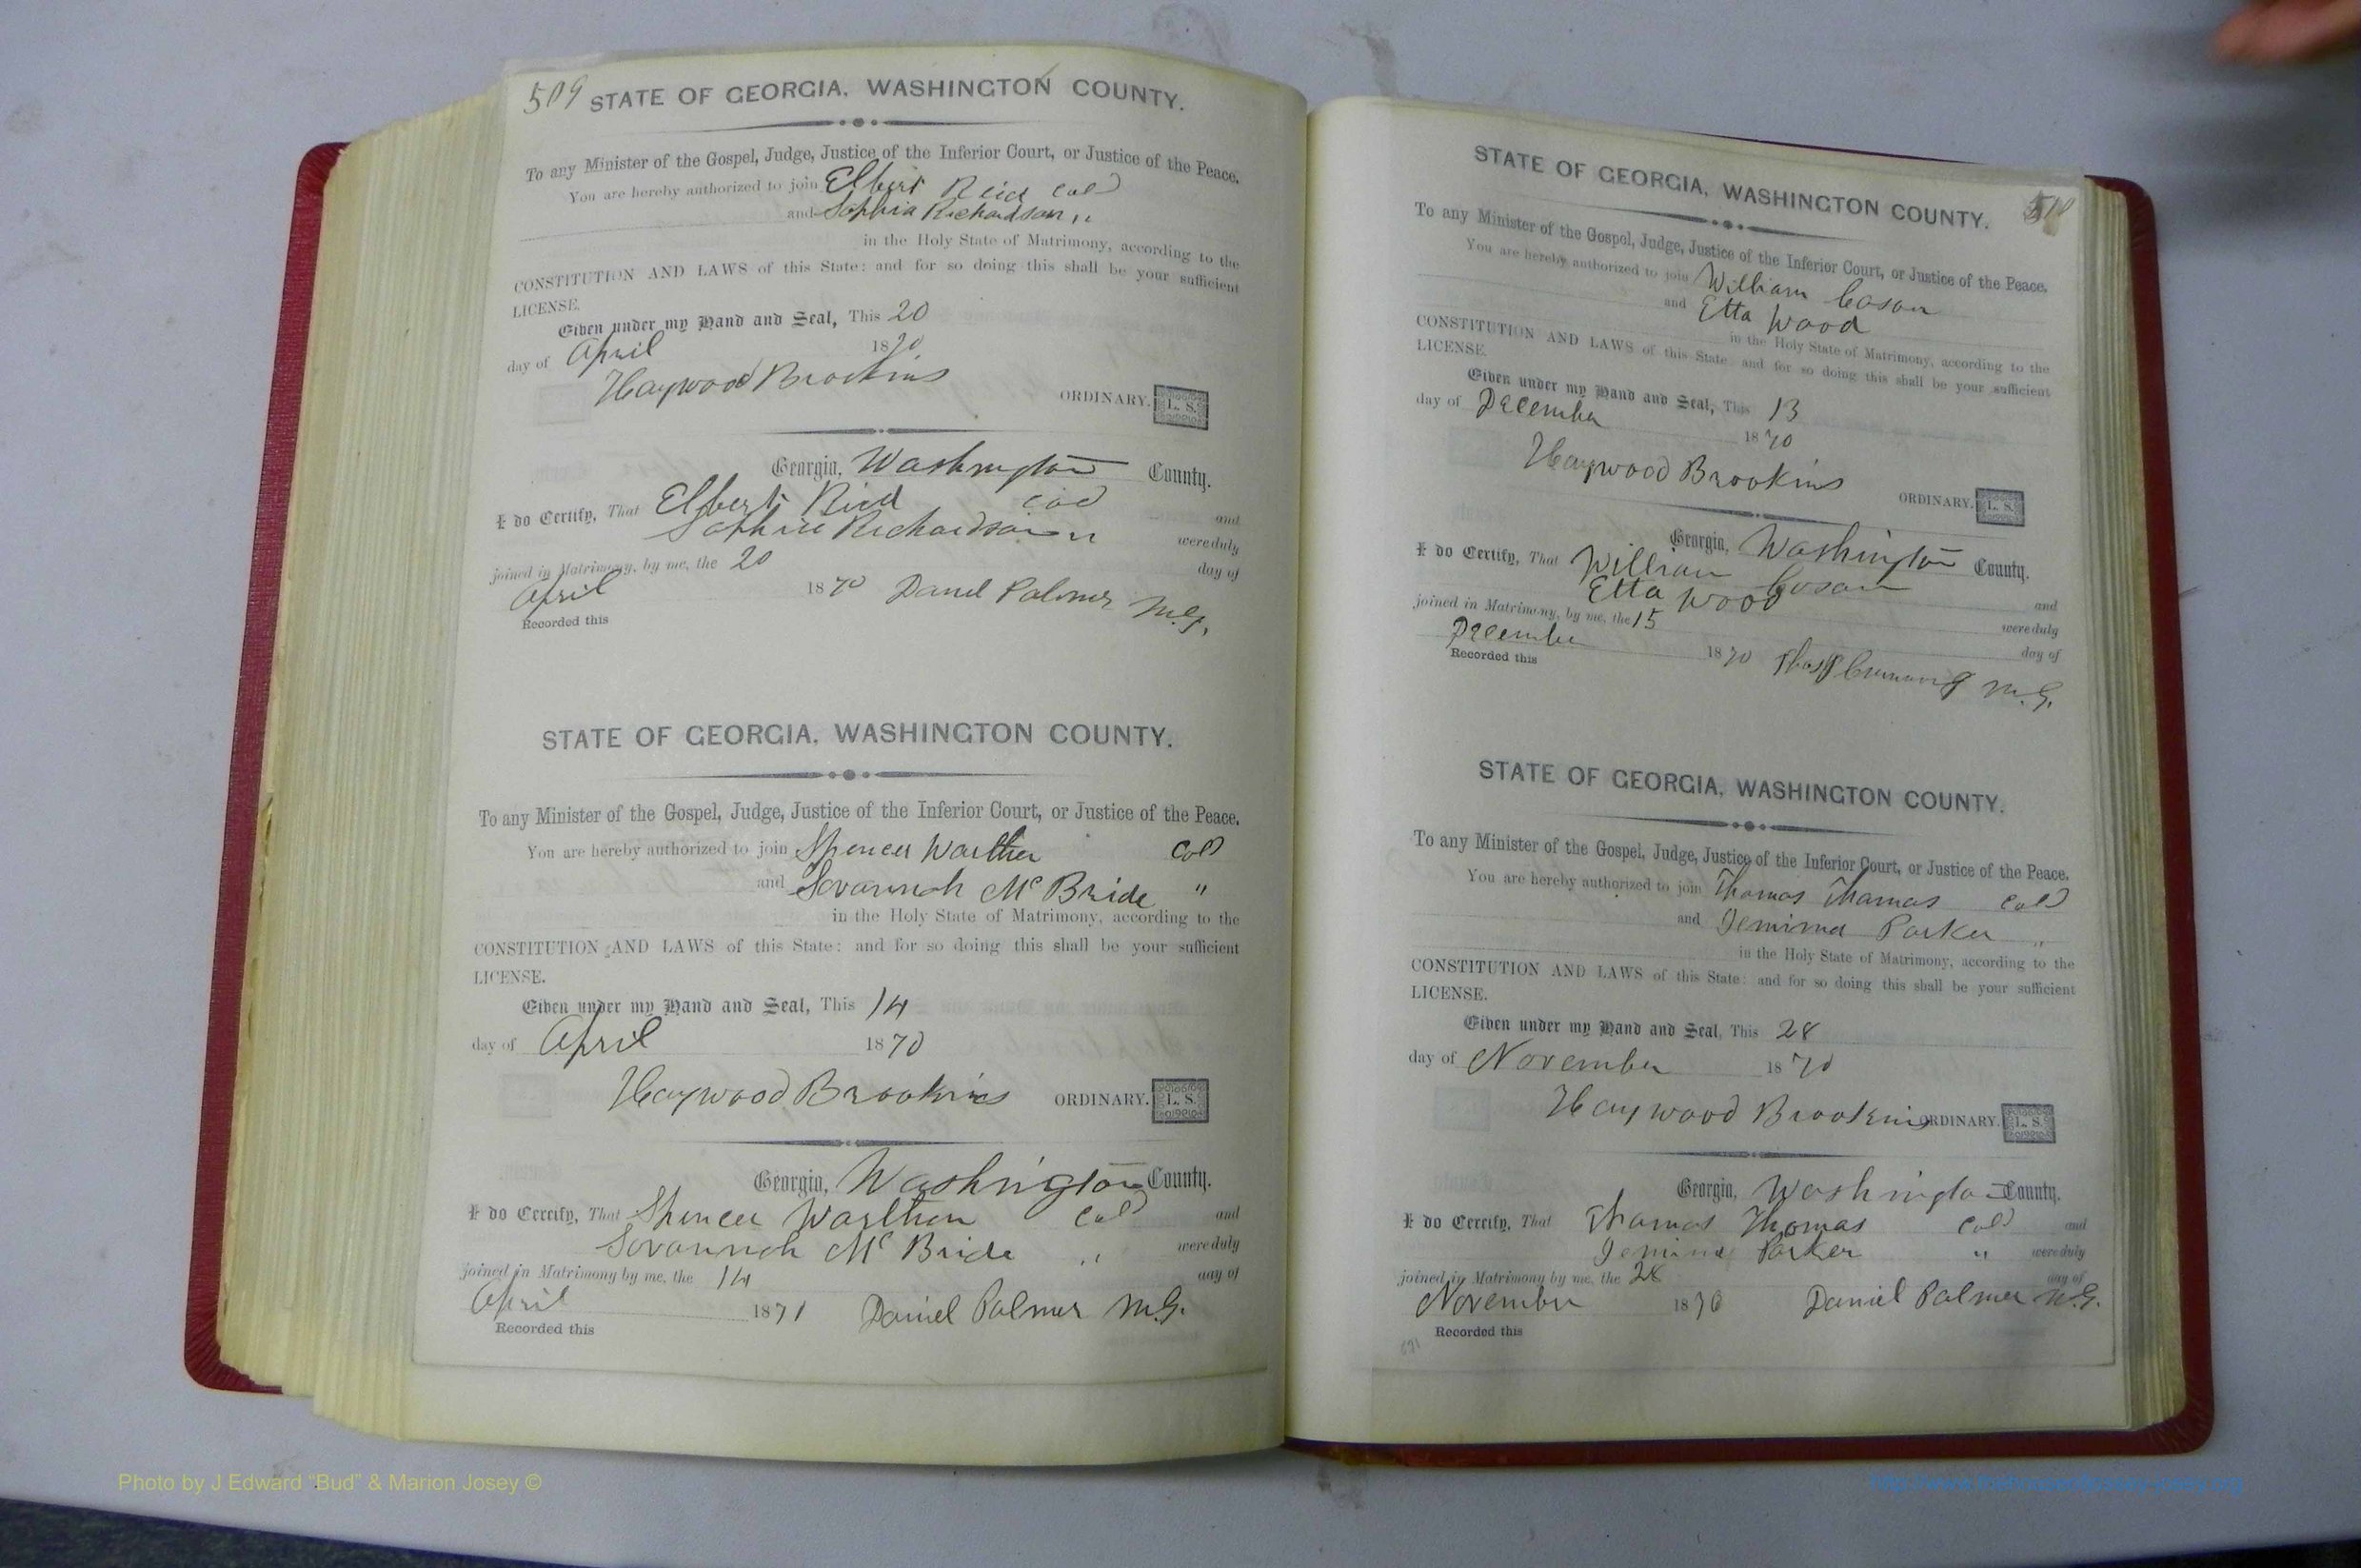 509
STATE OF GEORGIA, WASHINGTON COUNTY.
To any Minister of the Gospel, Judge, Justice of the Inferior Court, or Justice of the Peace.
You are hereby authorized to join Elbert Reid Cold
and Sophia Richardson "
in the Holy State of Matrimony, according to the
CONSTITUTION AND LAWS of this State: and for so doing this shall be your sufficient
LICENSE.
Given under my Hand and Seal, This 20
day of April 1870
Haywood Brookins
ORDINARY. L. S.
Georgia, Washington County.
I do Certify, That Elbert Ried cod and
Sophia Richardson " were duly
joined in Matrimony, by me, the 20 day of
April 1870 Daniel Palmer M.G.
Recorded this
STATE OF GEORGIA, WASHINGTON COUNTY.
To any Minister of the Gospel, Judge, Justice of the Inferior Court, or Justice of the Peace.
You are hereby authorized to join Spencer Warthen Cold
and Savannah McBride "
in the Holy State of Matrimony, according to the
CONSTITUTION AND LAWS of this State: and for so doing this shall be your sufficient
LICENSE.
Given under my Hand and Seal, This 14
day of April 1870
Haywood Brookins ORDINARY. L. S.
Georgia, Washington County.
I do Certify, That Spencer Warthen Cold and
Savannah McBride " were duly
joined in Matrimony by me, the 14 day of
April 1871 Daniel Palmer M.G.
Recorded this
STATE OF GEORGIA, WASHINGTON COUNTY. 510
To any Minister of the Gospel, Judge, Justice of the Inferior Court, or Justice of the Peace.
You are hereby authorized to join William Cason
and Etta Wood
in the Holy State of Matrimony, according to the
CONSTITUTION AND LAWS of this State: and for so doing this shall be your sufficient
LICENSE.
Given under my Hand and Seal, This 13
day of December 1870
Haywood Brookins
ORDINARY. L. S.
Georgia, Washington County.
I do Certify, That William Cosan and
Etta Wood were duly
joined in Matrimony, by me, the 15 day of
December 1870 M.G.
Recorded this
STATE OF GEORGIA, WASHINGTON COUNTY.
To any Minister of the Gospel, Judge, Justice of the Inferior Court, or Justice of the Peace.
You are hereby authorized to join Thomas Thomas Cold
and Jemima Parker "
in the Holy State of Matrimony, according to the
CONSTITUTION AND LAWS of this State: and for so doing this shall be your sufficient
LICENSE.
Given under my Hand and Seal, This 28
day of November 1870
Haywood Brookins ORDINARY. L. S.
Georgia, Washington County.
I do Certify, That Thomas Thomas Cold and
Jemima Parker " were duly
joined in Matrimony by me, the 28 day of
November 1870 Daniel Palmer M.G.
Recorded this
Photo by J Edward "Bud" & Marion Josey ©